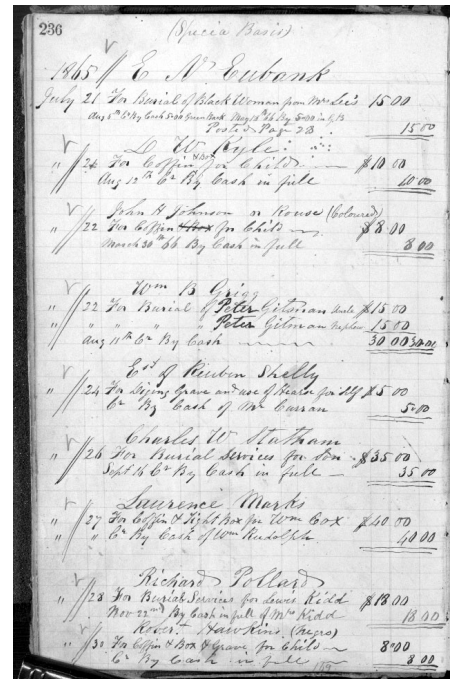 236
(Specia Basis)
1865 // E N. Eubank
July 21 For Burial of Black Woman from Mrs Lee's 15.00
Posted Page 23 15.00
D W Kyle
" // 24 For Coffin & Box for Child $10.00
Aug 12th Cr By Cash in full 10.00
John H Johnson or Rouse (Coloured)
" // 22 For Coffin & Box for Child $8.00
March 30th 66 By Cash in full 8.00
Wm B Grigg
" // 22 For Burial of Peter Gitman Uncle $15.00
" // " " " " Peter Gitman Nephew 15.00
Aug 11th Cr By Cash 30 00 30.00
Est of Reuben Shelly
" // 24 For Diging Grave and use of Hearse for self $5.00
Cr By Cash of Mr Curran 5.00
Charles W Statham
" // 26 For Burial Services for Son $35.00
Sept 16 Cr By Cash in full 35 00
Laurence Marks
" // 27 For Coffin & Tight Box for Wm Cox $40.00
" // " Cr By Cash of Wm Rudolph 40.00
Richard Pollard
" // 28 For Burial Services for Lewis Kidd $18.00
Nov 22nd By Cash in full of Mrs Kidd 18.00
Robert Hawkins (negro)
" // 30 For Coffin & Box & Grave for Child 8.00
Cr By Cash in full 8 00